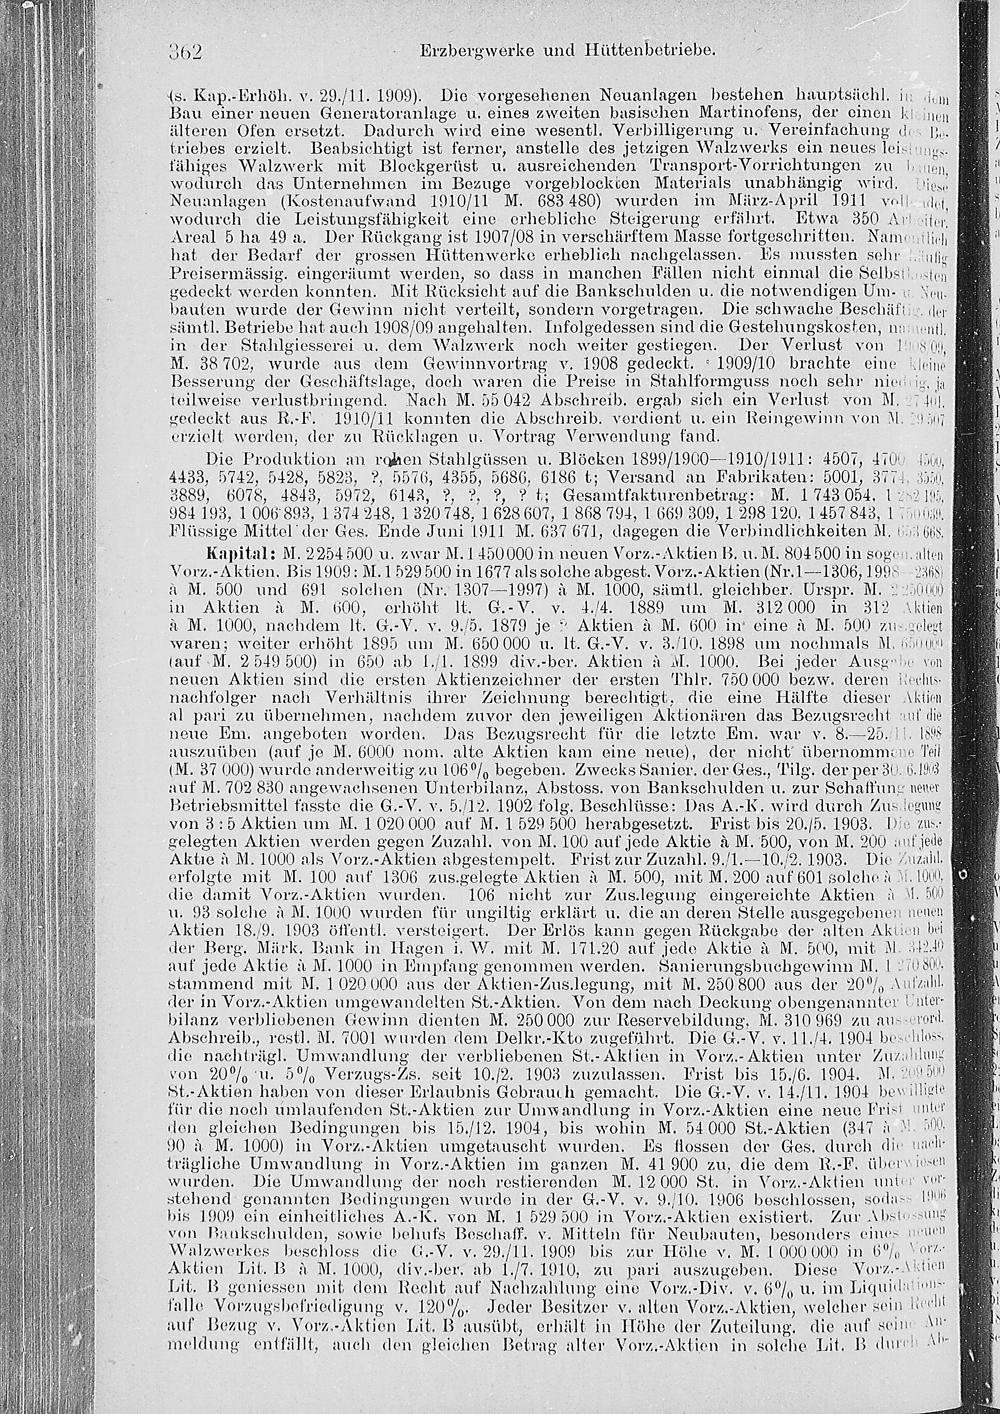 362 Erzbergwerke und Hüttenbetriebe.
(s. Kap.-Erhöh. v. 29./11. 1909). Die vorgesehenen Neuanlagen bestehen hauptsächl. in dem
Bau einer neuen Generatoranlage u. eines zweiten basischen Martinofens, der einen kleinen
älteren Ofen ersetzt. Dadurch wird eine wesentl. Verbilligerung u. Vereinfachung des Be-
triebes erzielt. Beabsichtigt ist ferner, anstelle des jetzigen Walzwerks ein neues leistungs-
fähiges Walzwerk mit Blockgerüst u. ausreichenden Transport-Vorrichtungen zu bauen,
wodurch das Unternehmen im Bezuge vorgeblockten Materials unabhängig wird. Diese
Neuanlagen (Kostenaufwand 1910/11 M. 683 480) wurden im März-April 1911 vollendet,
wodurch die Leistungsfähigkeit eine erhebliche Steigerung erfährt. Etwa 350 Arbeiter.
Areal 5 ha 49 a. Der Rückgang ist 1907/08 in verschärftem Masse fortgeschritten. Namentlich
hat der Bedarf der grossen Hüttenwerke erheblich nachgelassen. Es mussten sehr häufig
Preisermässig. eingeräumt werden, so dass in manchen Fällen nicht einmal die Selbstkosten
gedeckt werden konnten. Mit Rücksicht auf die Bankschulden u. die notwendigen Um- u. Neu-
bauten wurde der Gewinn nicht verteilt, sondern vorgetragen. Die schwache Beschäftig. der
sämtl. Betriebe hat auch 1908/09 angehalten. Infolgedessen sind die Gestehungskosten, namentl.
in der Stahlgiesserei u. dem Walzwerk noch weiter gestiegen. Der Verlust von 1908/09,
M. 38 702, wurde aus dem Gewinnvortrag v. 1908 gedeckt. 1909/10 brachte eine kleine
Besserung der Geschäftslage, doch waren die Preise in Stahlformguss noch sehr niedrig, ja
teilweise verlustbringend. Nach M. 55 042 Abschreib. ergab sich ein Verlust von M. 27 401,
gedeckt aus R.-F. 1910/11 konnten die Abschreib. verdient u. ein Reingewinn von M. 29 507
erzielt werden, der zu Rücklagen u. Vortrag Verwendung fand.
Die Produktion an rohen Stahlgüssen u. Blöcken 1899/1900—1910/1911: 4507, 4700, 4500,
4433, 5742, 5428, 5823, ?, 5576, 4355, 5686, 6186 t; Versand an Fabrikaten: 5001, 3774, 3550,
3889, 6078, 4843, 5972, 6143, ?, ?, ?, ? t; Gesamtfakturenbetrag: M. 1 743 054, 1 282 195,
984 193, 1 006 893, 1 374 248, 1 320 748, 1 628 607, 1 868 794, 1 669 309, 1 298 120, 1 457 843,
Flüssige Mittel der Ges. Ende Juni 1911 M. 637 671, dagegen die Verbindlichkeiten M. 653 668.
Kapital: M. 2 254 500 u. zwar M. 1 450 000 in neuen Vorz.-Aktien B. u. M. 804 500 in sogen. alten
Vorz.-Aktien. Bis 1909: M. 1 529 500 in 1677 als solche abgest. Vorz.-Aktien (Nr. 1—1306, 1998—2368)
à M. 500 und 691 solchen (Nr. 1307—1997) à M. 1000, sämtl. gleichber. Urspr. M. 2 250 000
in Aktien à M. 600, erhöht lt. G.-V. v. 4./4. 1889 um M. 312 000 in 312 Aktien
à M. 1000, nachdem lt. G.-V. v. 9./5. 1879 je ? Aktien à M. 600 in eine à M. 500 zus.gelegt
waren; weiter erhöht 1895 um M. 650 000 u. lt. G.-V. v. 3./10. 1898 um nochmals M. 650 000
(auf M. 2 549 500) in 650 ab 1./1. 1899 div.-ber. Aktien à M. 1000. Bei jeder Ausgabe von
neuen Aktien sind die ersten Aktienzeichner der ersten Thlr. 750 000 bezw. deren Rechts-
nachfolger nach Verhältnis ihrer Zeichnung berechtigt, die eine Hälfte dieser Aktien
al pari zu übernehmen, nachdem zuvor den jeweiligen Aktionären das Bezugsrecht auf die
neue Em. angeboten worden. Das Bezugsrecht für die letzte Em. war v. 8.—25./11. 1898
auszuüben (auf je M. 6000 nom. alte Aktien kam eine neue), der nicht übernommene Teil
(M. 37 000) wurde anderweitig zu 106% begeben. Zwecks Sanier. der Ges., Tilg. der per 30./6. 1903
auf M. 702 830 angewachsenen Unterbilanz, Abstoss. von Bankschulden u. zur Schaffung neuer
Betriebsmittel fasste die G.-V. v. 5./12. 1902 folg. Beschlüsse: Das A.-K. wird durch Zus.legung
von 3 : 5 Aktien um M. 1 020 000 auf M. 1 529 500 herabgesetzt. Frist bis 20./5. 1903. Die zus.-
gelegten Aktien werden gegen Zuzahl. von M. 100 auf jede Aktie à M. 500, von M. 200 auf jede
Aktie à M. 1000 als Vorz.-Aktien abgestempelt. Frist zur Zuzahl. 9./1.—10./2. 1903. Die Zuzahl.
erfolgte mit M. 100 auf 1306 zus.gelegte Aktien à M. 500, mit M. 200 auf 601 solche à M. 1000,
die damit Vorz.-Aktien wurden. 106 nicht zur Zus.legung eingereichte Aktien à M. 500
u. 93 solche à M. 1000 wurden für ungiltig erklärt u. die an deren Stelle ausgegebenen neuen
Aktien 18./9. 1903 öffentl. versteigert. Der Erlös kann gegen Rückgabe der alten Aktien bei
der Berg. Märk. Bank in Hagen i. W. mit M. 171.20 auf jede Aktie à M. 500, mit M. 342.40
auf jede Aktie à M. 1000 in Empfang genommen werden. Sanierungsbuchgewinn M. 1 270 800,
stammend mit M. 1 020 000 aus der Aktien-Zus.legung, mit M. 250 800 aus der 20% Aufzahl.
der in Vorz.-Aktien umgewandelten St.-Aktien. Von dem nach Deckung obengenannter Unter-
bilanz verbliebenen Gewinn dienten M. 250 000 zur Reservebildung, M. 310 969 zu ausserord.
Abschreib., restl. M. 7001 wurden dem Delkr.-Kto zugeführt. Die G.-V. v. 11./4. 1904 beschloss,
die nachträgl. Umwandlung der verbliebenen St.-Aktien in Vorz.-Aktien unter Zuzahlung
von 20% u. 5% Verzugs-Zs. seit 10./2. 1903 zuzulassen. Frist bis 15./6. 1904. M. 209 500
St.-Aktien haben von dieser Erlaubnis Gebrauch gemacht. Die G.-V. v. 14./11. 1904 bewilligte
für die noch umlaufenden St.-Aktien zur Umwandlung in Vorz.-Aktien eine neue Frist unter
den gleichen Bedingungen bis 15./12. 1904, bis wohin M. 54 000 St.-Aktien (347 à M. 500,
90 à M. 1000) in Vorz.-Aktien umgetauscht wurden. Es flossen der Ges. durch die nach-
trägliche Umwandlung in Vorz.-Aktien im ganzen M. 41 900 zu, die dem R.-F. überwiesen
wurden. Die Umwandlung der noch restierenden M. 12 000 St. in Vorz.-Aktien unter vor-
stehend genannten Bedingungen wurde in der G.-V. v. 9./10. 1906 beschlossen, sodass 1906
bis 1909 ein einheitliches A.-K. von M. 1 529 500 in Vorz.-Aktien existiert. Zur Abstossung
von Bankschulden, sowie behufs Beschaff. v. Mitteln für Neubauten, besonders eines neuen
Walzwerkes beschloss die G.-V. v. 29./11. 1909 bis zur Höhe v. M. 1 000 000 in 6% Vorz.-
Aktien Lit. B à M. 1000, div.-ber. ab 1./7. 1910, zu pari auszugeben. Diese Vorz.-Aktien
Lit. B geniessen mit dem Recht auf Nachzahlung eine Vorz.-Div. v. 6% u. im Liquidations-
falle Vorzugsbefriedigung v. 120%. Jeder Besitzer v. alten Vorz.-Aktien, welcher sein Recht
auf Bezug v. Vorz.-Aktien Lit. B ausübt, erhält in Höhe der Zuteilung, die auf seine An-
meldung entfällt, auch den gleichen Betrag alter Vorz.-Aktien in solche Lit. B durch Ab-